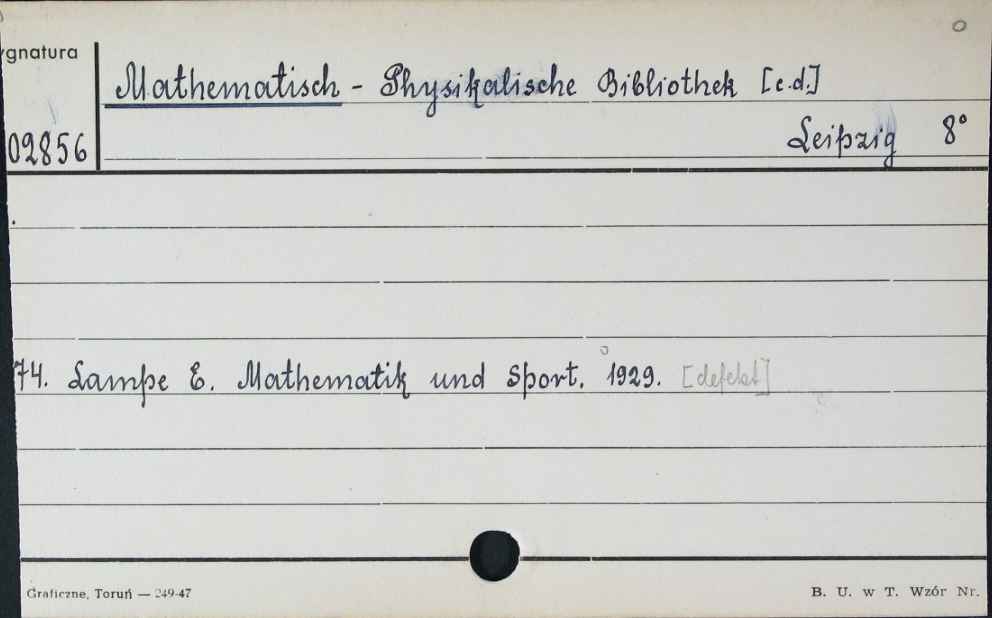 ygnatura
Mathematisch - Physikalische Bibliothek [c.d.]
Leipzig 8°
02856
74. Lampe E. Mathematik und Sport. 1929. [defekt]
Graficzne, Toruń — 249-47
B. U. w T. Wzór Nr.